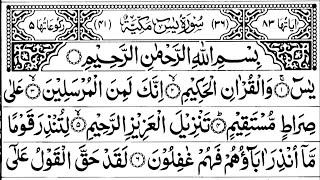 اٰیاتها ۸۳ (۳۶) سُوْرَةُ یٰسٓ مَكِّیَّةٌ (۴۱) رکوعاتها ۵
بِسْمِ اللّٰهِ الرَّحْمٰنِ الرَّحِیْمِ
یٰسٓ ۱ وَالْقُرْاٰنِ الْحَكِیْمِ ۲ اِنَّكَ لَمِنَ الْمُرْسَلِیْنَ ۳ عَلٰی
صِرَاطٍ مُّسْتَقِیْمٍ ۴ تَنْزِیْلَ الْعَزِیْزِ الرَّحِیْمِ ۵ لِتُنْذِرَ قَوْمًا
مَّاۤ اُنْذِرَ اٰبَآؤُهُمْ فَهُمْ غٰفِلُوْنَ ۶ لَقَدْ حَقَّ الْقَوْلُ عَلٰۤی